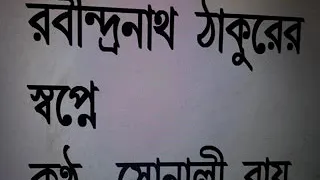 রবীন্দ্রনাথ ঠাকুরের
স্বপ্নে
কণ্ঠ সোনালী রায়